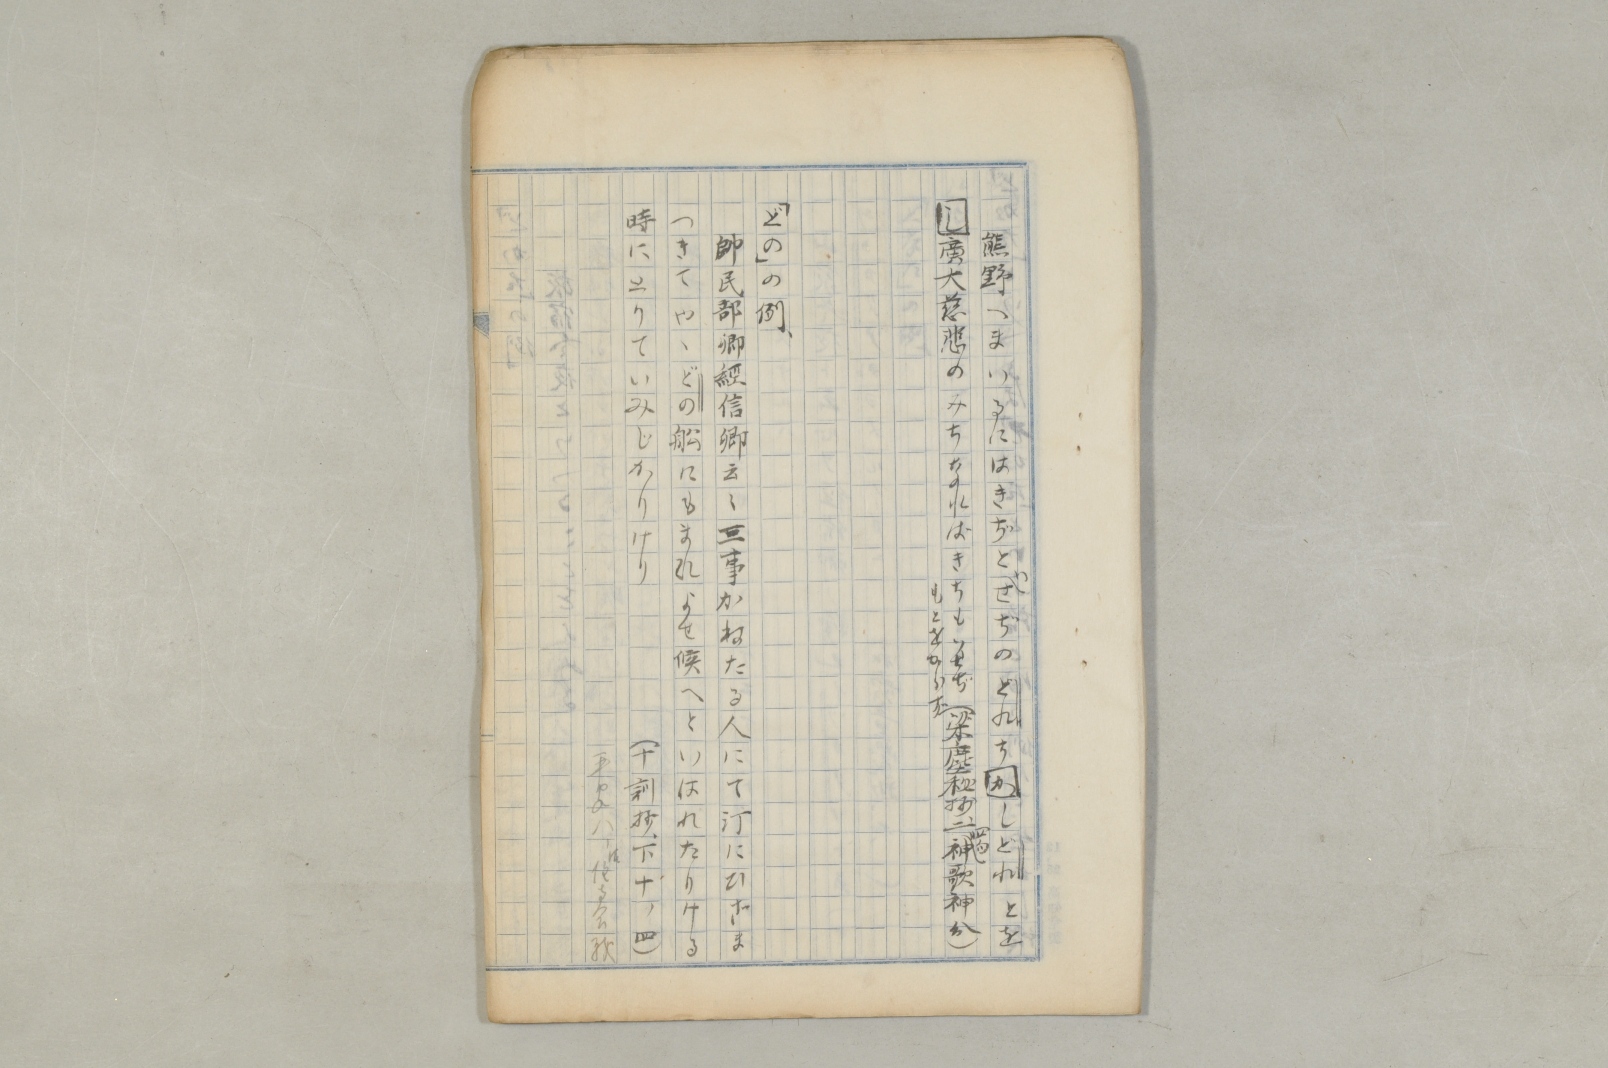 熊野へまいるにはきぢとせぢのどれちかしどれとを
し廣大慈悲のみちなればきぢもいせぢ
もとをからず
(梁塵秘抄二、神歌神分)
四句
「どの」の例、
帥民部卿經信卿云々三事かねたる人にて汀にひざま
つきてや、どの船にもまれよせ候へといはれたりける
時にとりていみじかりけり
(十訓抄、下十ノ四)